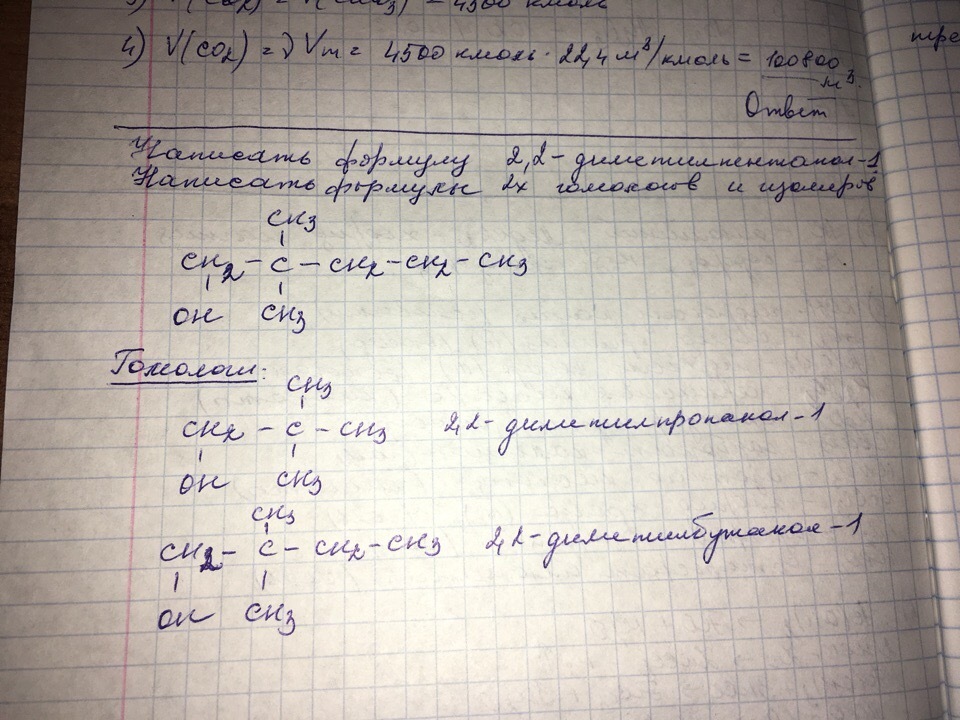 3) V(CO2) = V(CaCO3) = 4500 кмоль
4) V(CO2) = ν Vm = 4500 кмоль · 22,4 м³/кмоль = 100800 м³.
Ответ
Написать формулу 2,2-диметилпентанол-1
Написать формулы 2х гомологов и изомеров
CH3
CH2 – C – CH2 – CH2 – CH3
OH CH3
Гомологи:
CH3
CH2 – C – CH3 2,2-диметилпропанол-1
OH CH3
CH3
CH2 – C – CH2 – CH3 2,2-диметилбутанол-1
OH CH3